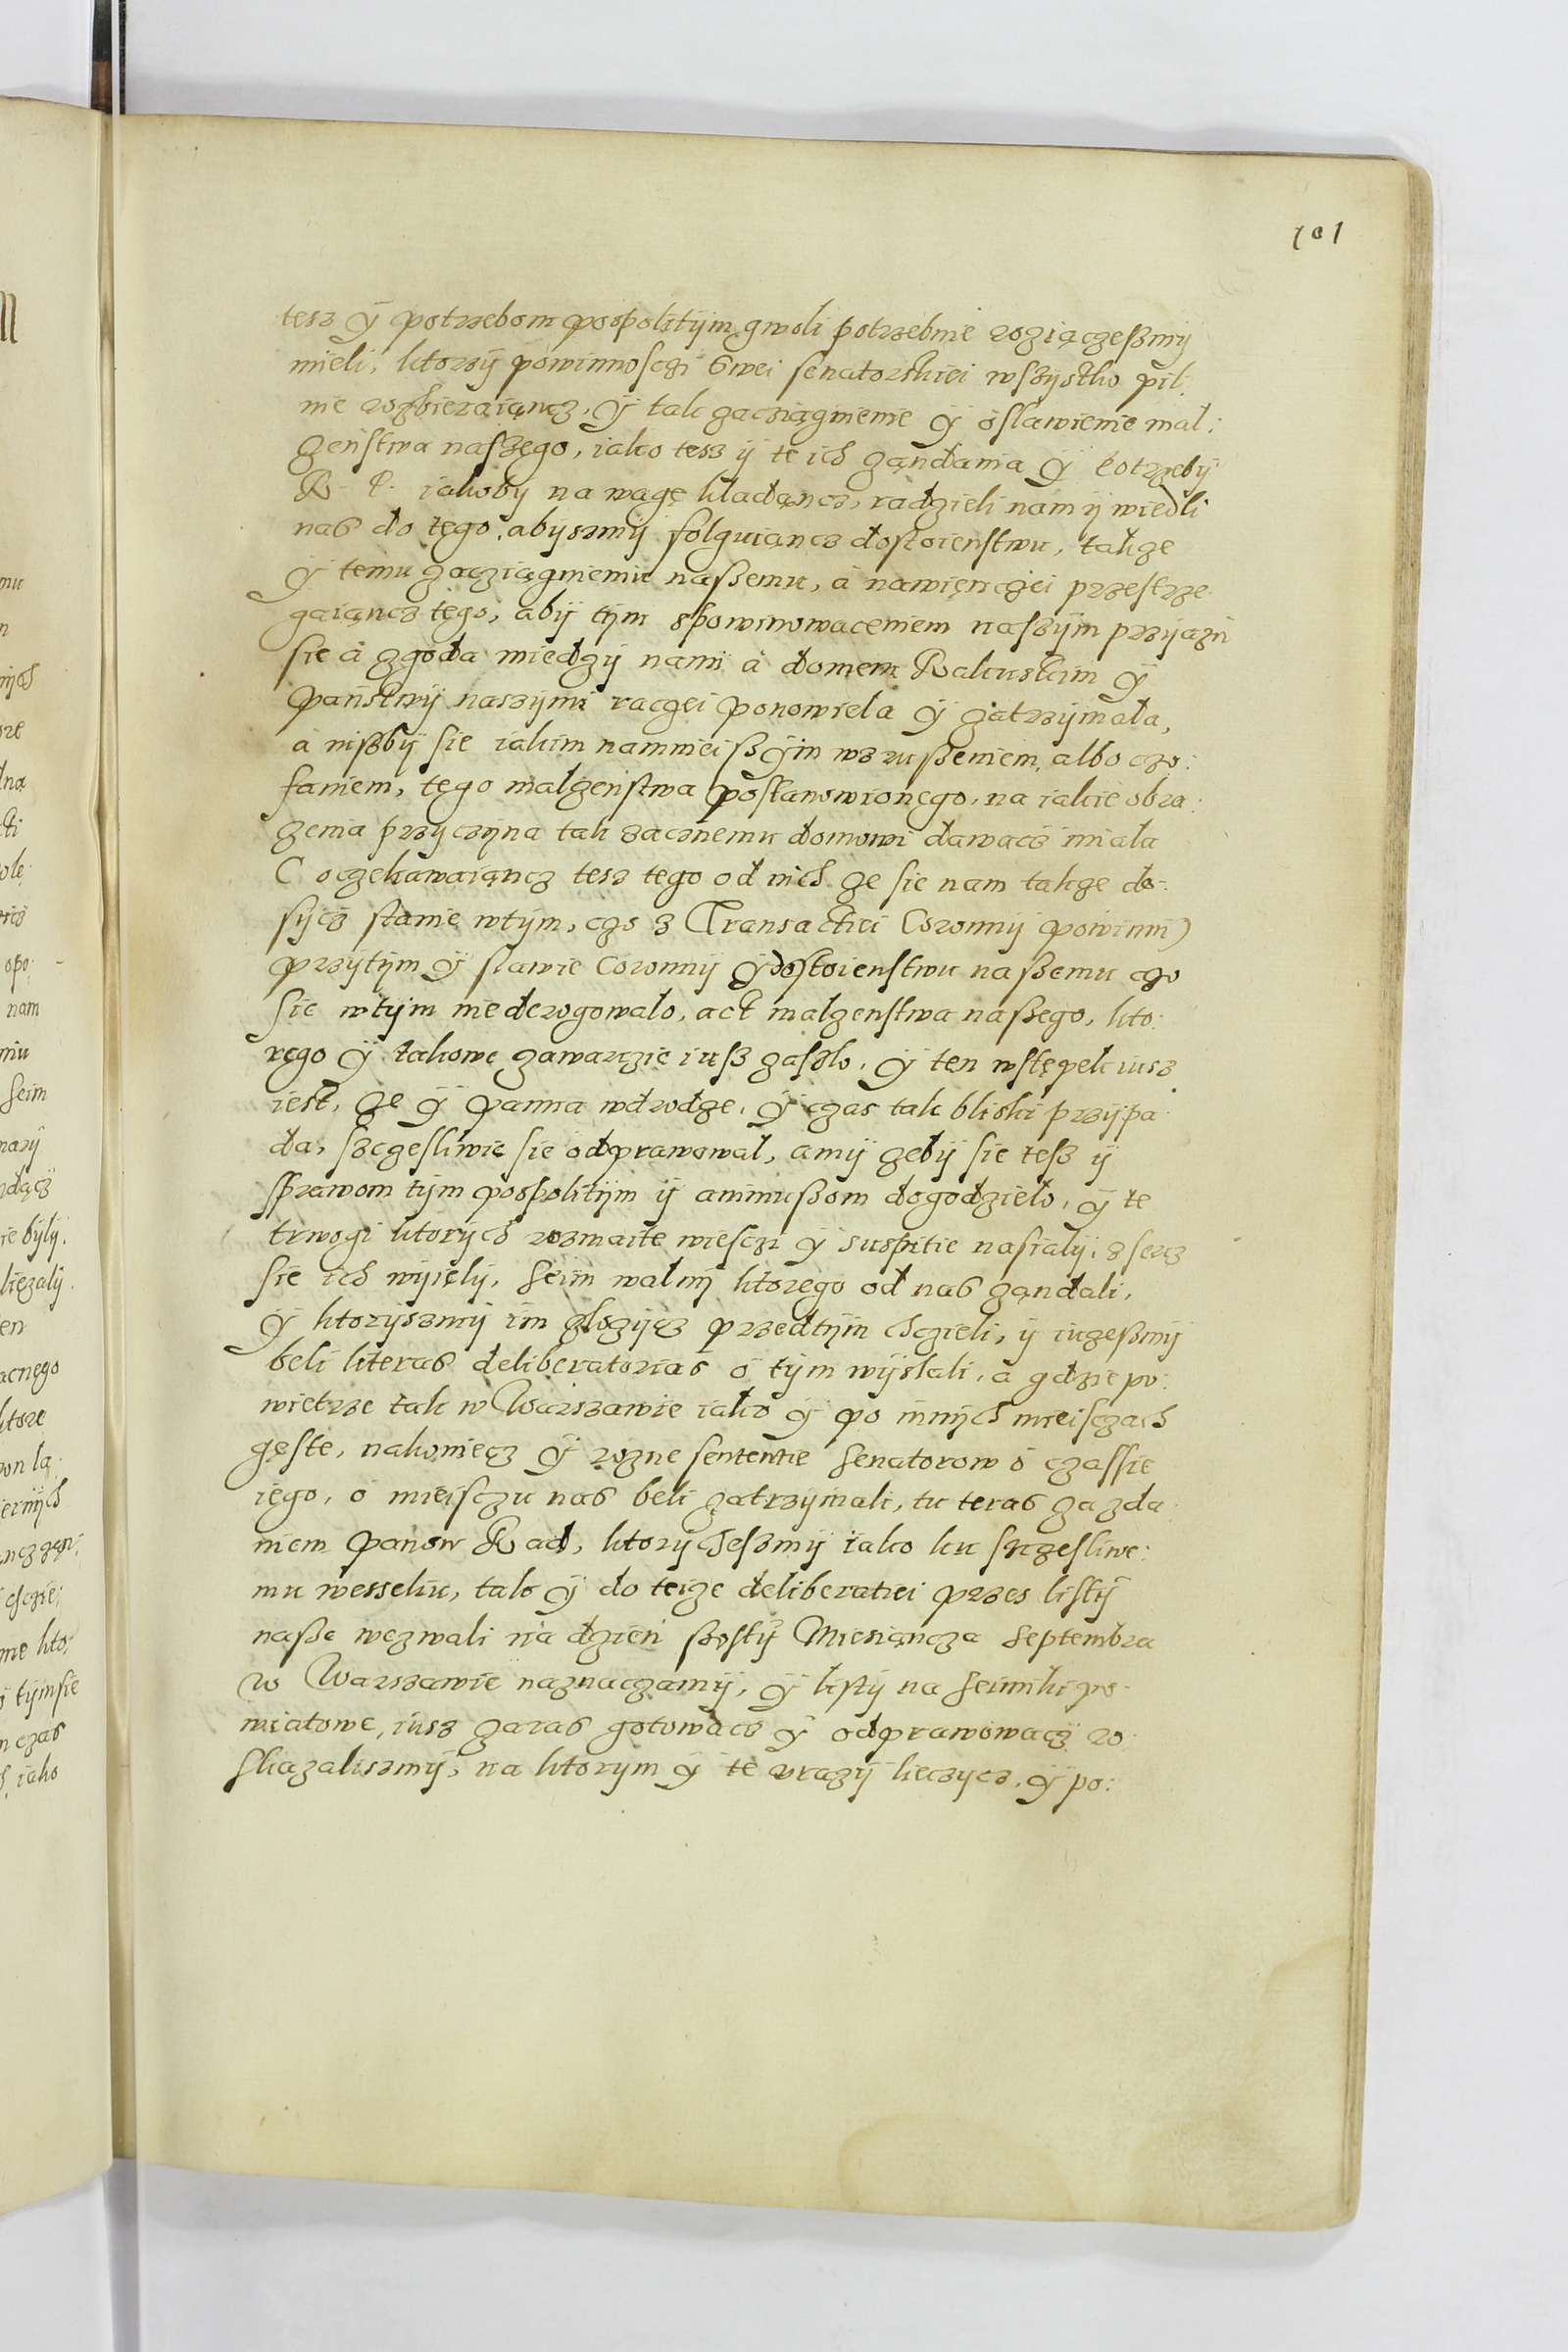 101
tesz y potrzebom pospolitym gwoli potrzebnie rozią czeßmy
mieli, ktorzy powinnosczi swei senatorskiei wszystko pil:
nie rozbieraiącz, y tak zaciągnienie y osławienie mał:
zeństwa naszego, iako tesz y te ich ządania y Potrzeby
R. P. iakoby na wagę kładącz, radzieli nam y wiedli
nas do tego, abyszmy folguiącz dostoienstwu, takze
y temu zacziągnieniu naßemu, a nawięnczei przestrze
gaiąncz tego, aby tym spowinowaceniem naszym przyazń
sie a zgoda miedzy nami a domem Rakuskim y
państwy naszymi raczei ponowiela y zatrzymała,
a nißby sie iakim namnieißym wzrußeniem albo czo:
faniem, tego małzeństwa postanowionego, na iakie obra:
zenia przyczyna tak zacznemu domowi dawacz miała
Coczekawaiąncz tesz tego od nich ze sie nam takze do:
sycz stanie wtym, czo z Transactiei Coronny powinni)
przytym y sławie Coronny y dostoienstwu naßemu czo
sie wtym niederogowało, act malzenstwa naßego, kto:
rego y takowe zawarczie iusz zaszło, y ten wstępek iusz
iest, ze y Panna wdrodze, y czas tak bliski przypa
da, szczesliwie sie odprawował, a my zeby sie tesz y
sprawom tym pospolitym y animußom dogodzieło, y te
trwogi ktorych rozmaite wiesczi y suspitie nasiały, z sercz
sie ich wyięły, Seim walny ktorego od nas ząndali,
y ktoryszmy im złozycz przedtym chczieli, y iuzeßmy
beli literas deliberatorias o tym wysłali, a gdzie po:
wietrze tak w Warszawie iako y po innych mieisczach
gęste, nakoniecz y rozne sententie Senatorow o czassie
iego, o mieisczu nas beli zatrzymali, tu teras za zda
niem Panow Rad, ktorychesmy iako ku sczesliwe:
mu wesseliu, tako y do teize deliberatiei przes listy
naße wezwali na dzien ßosty Miesiąncza Septembra
w Warszawie naznaczamy, y listy na Seimiki po:
wiatowe, iusz zaras gotowacz y odprawowacz ro:
skazaliszmy, na ktorym y te urazy lieczycz, y po: